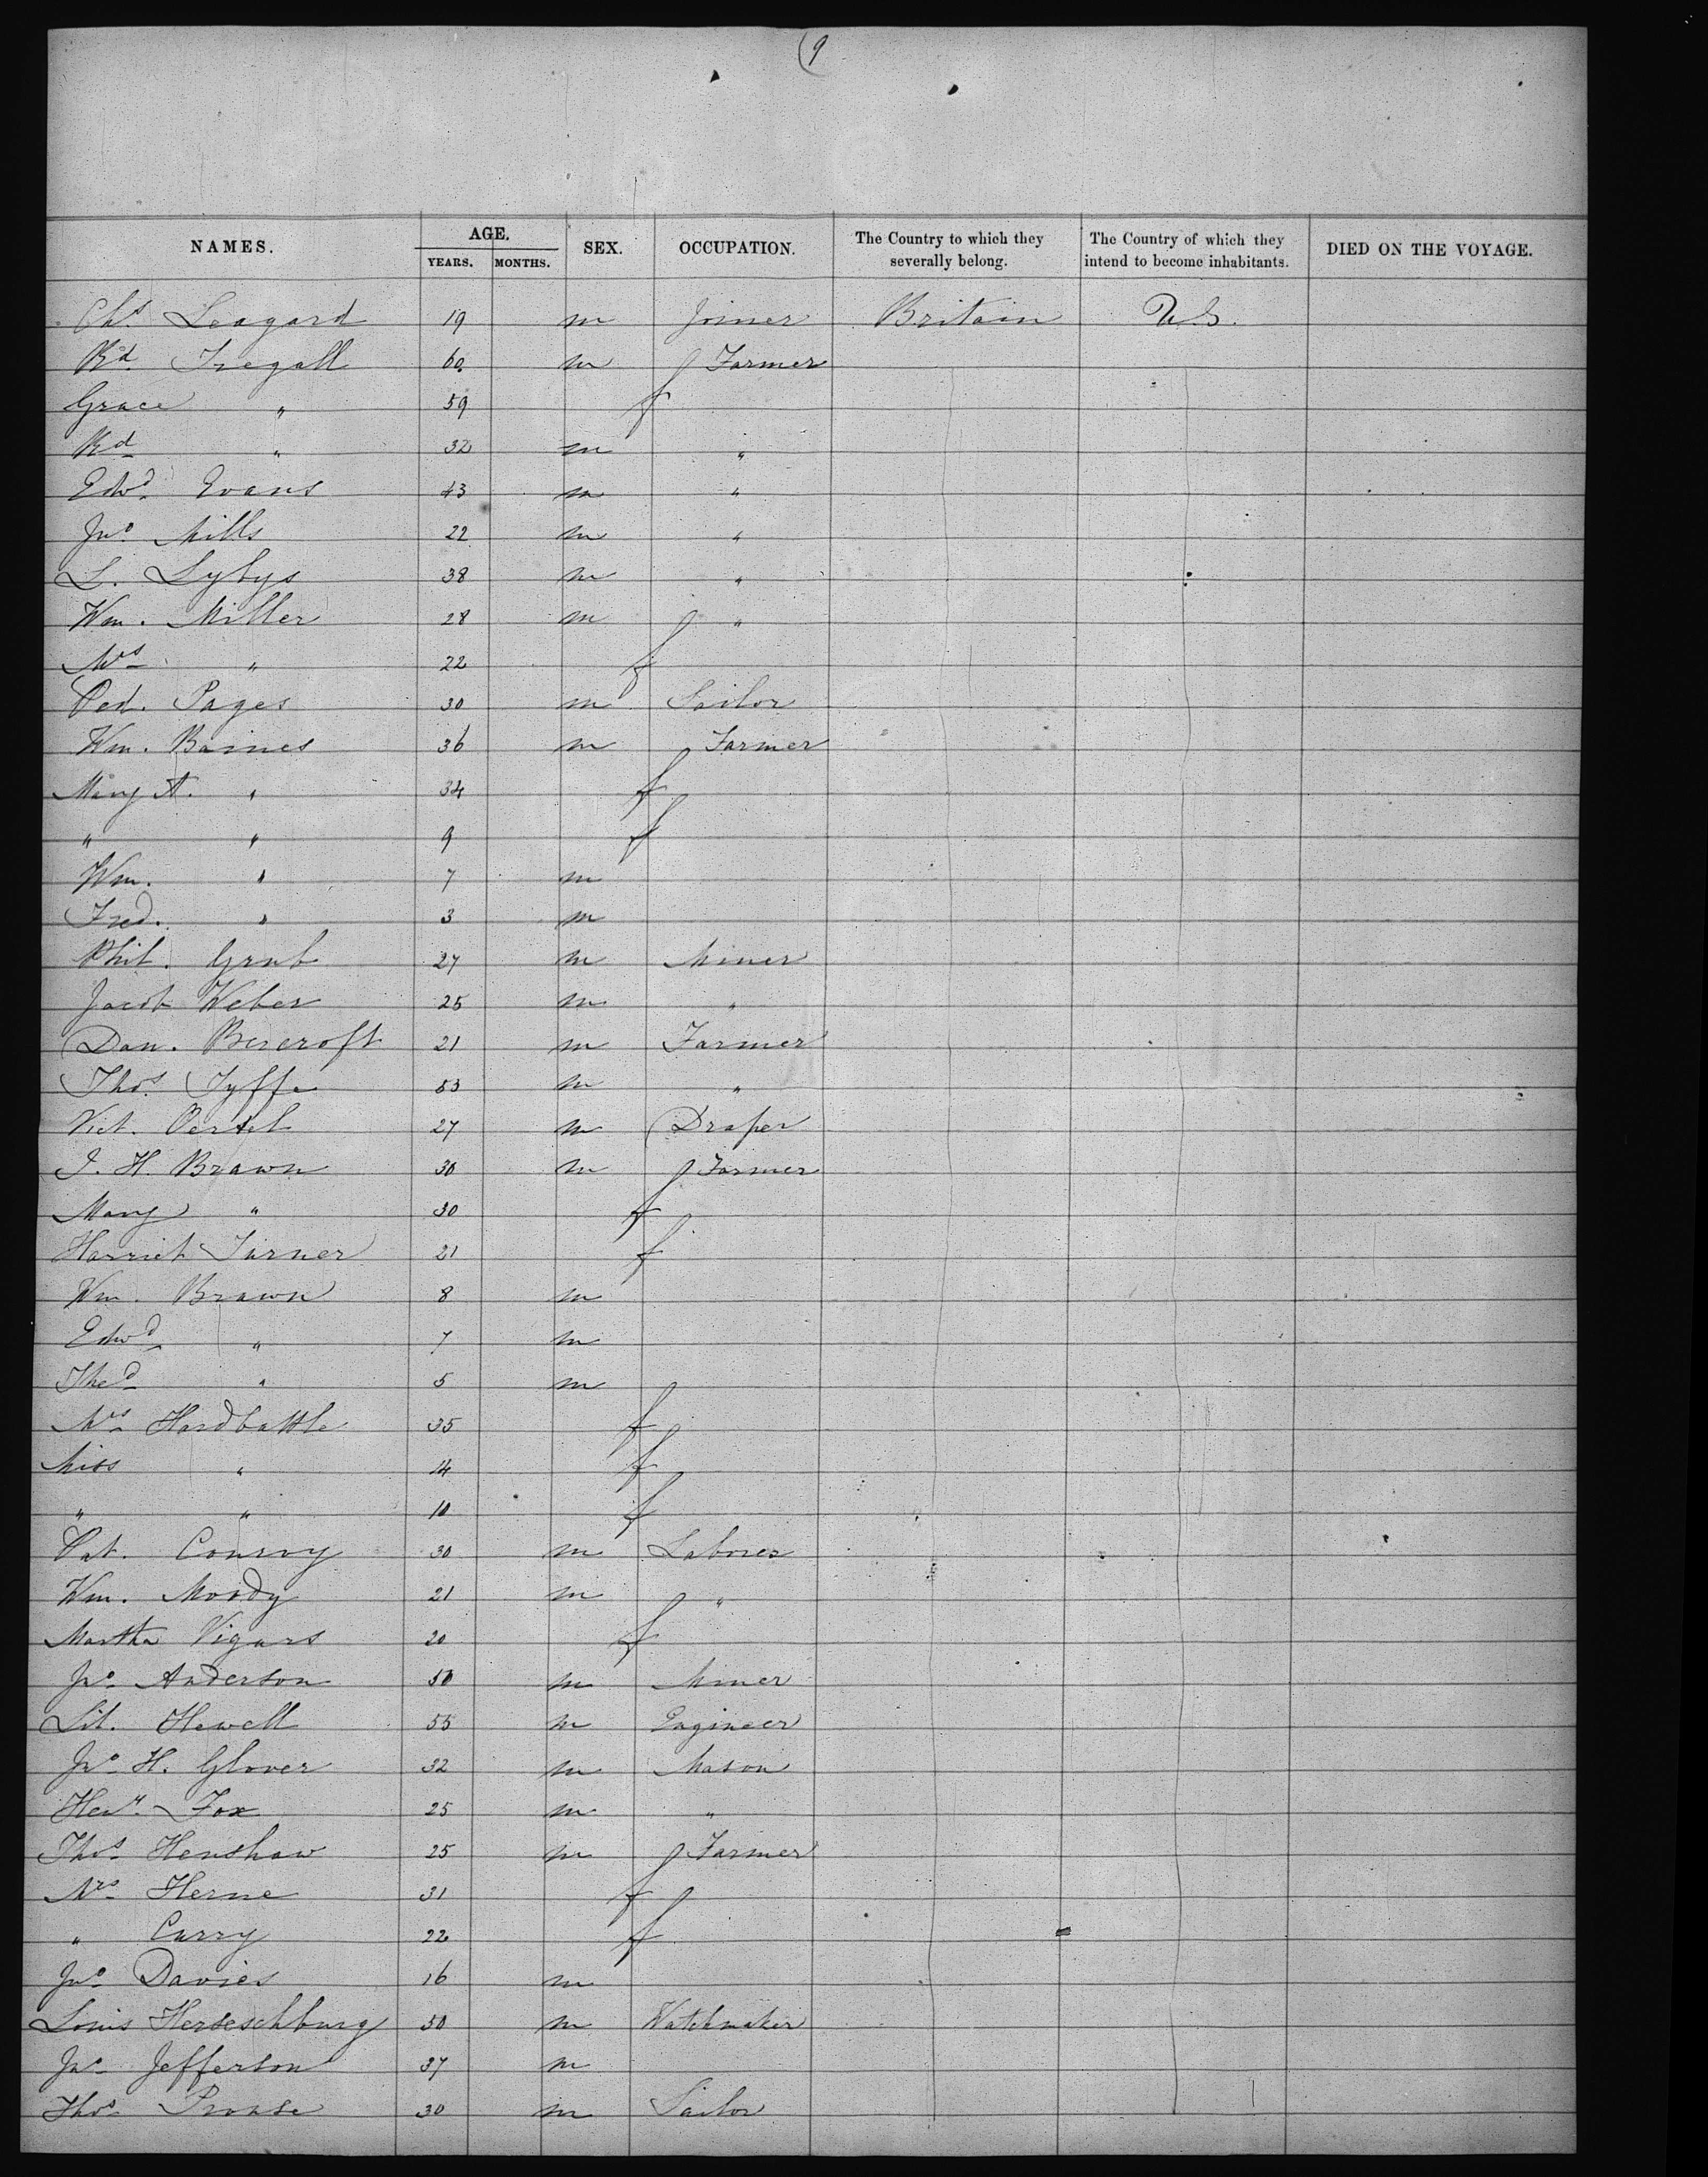 9
NAMES. AGE. YEARS. MONTHS. SEX. OCCUPATION. The Country to which they severally belong. The Country of which they intend to become inhabitants. DIED ON THE VOYAGE.
Chs. Leagard 19 m Joiner Britain U.S.
Rd. Tregall 60. m Farmer
Grace " 59 f
Rd " 32 m "
Edwd. Evans 43 m "
Jno. Mills 22 m "
L. Lybys 38 m "
Wm. Miller 28 m "
Mrs " 22 f
Ped. Pages 30 m Sailor
Wm. Baines 36 m Farmer
Mary A. " 34 f
" " 9 f
Wm. " 7 m
Fred. " 3 m
Phil. Grub 27 m Miner
Jacob Weber 25 m "
Dan. Bercroft 21 m Farmer
Thos. Fyffe 53 m "
Vict. Oertel 27 m Draper
J. H. Brawn 30 m Farmer
Mary " 30 f
Harriet Turner 21 f
Wm. Brawn 8 m
Edwd " 7 m
Thed " 5 m
Mrs Hardbattle 35 f
Miss " 14 f
" " 10 f
Pat. Conroy 30 m Laborer
Wm. Moody 21 m "
Martha Vigars 20 f
Jno. Anderson 50 m Miner
Sil. Hewell 55 m Engineer
Jno. H. Glover 32 m Mason
Heny. Fox 25 m "
Thos Henshaw 25 m Farmer
Mrs Herne 31 f
" Curry 22 f
Jno. Davies 16 m
Louis Herseschburg 50 m Watchmaker
Jno. Jefferson 37 m
Thos Prouse 30 m Sailor